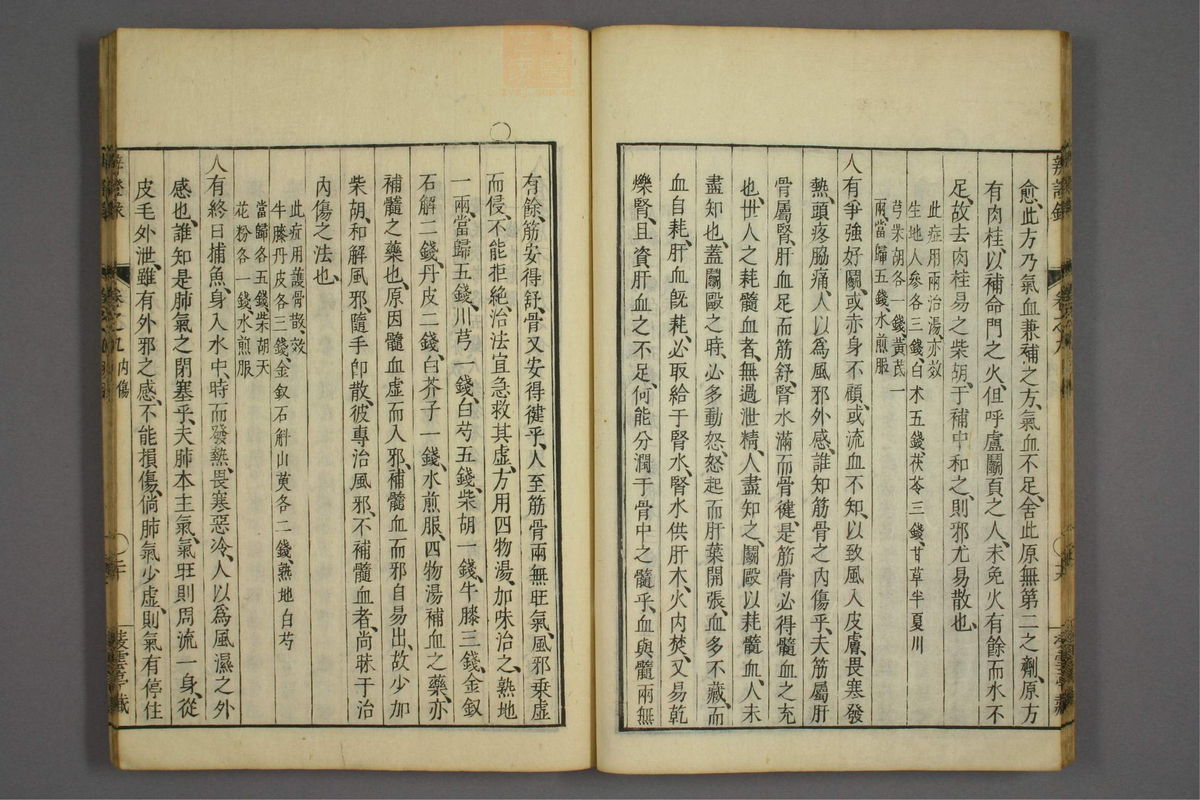 愈、此方乃氣血兼補之方、氣血不足、舍此原無第二之劑、原方
有肉桂、以補命門之火、但呼盧鬭頁之人、未免火有餘而水不
足、故去肉桂易之柴胡、于補中和之、則邪尤易散也、
此症用兩治湯、亦效
生地人參各三錢、白朮五錢、茯苓三錢、甘草半夏川
芎柴胡各一錢、黃芪一
兩、當歸五錢、水煎服
人有爭強好鬭、或赤身不顧、或流血不知、以致風入皮膚、畏寒發
熱、頭疼脇痛、人以為風邪外感、誰知筋骨之內傷乎、夫筋屬肝
骨屬腎、肝血足而筋舒、腎水滿而骨健、是筋骨必得髓血之充
也、世人之耗髓血者、無過泄精、人盡知之、鬭毆以耗髓血、人未
盡知也、蓋鬭毆之時、必多動怒、怒起而肝葉開張、血多不藏、而
血自耗、肝血既耗、必取給于腎水、腎水供肝木、火內焚、又易乾
爍腎、且資肝血之不足、何能分潤于骨中之髓乎、血與髓兩無
有餘、筋安得舒、骨又安得健乎、人至筋骨兩無旺氣、風邪乘虛
而侵、不能拒絕、治法宜急救其虛、方用四物湯、加味治之、熟地
一兩、當歸五錢、川芎一錢、白芍五錢、柴胡一錢、牛膝三錢、金釵
石斛二錢、丹皮二錢、白芥子一錢、水煎服、四物湯補血之藥、亦
補髓之藥也、原因髓血虛而入邪、補髓血而邪自易出、故少加
柴胡、和解風邪、隨手卽散、彼專治風邪、不補髓血者、尚昧于治
內傷之法也、
此症用護骨散、效
牛膝丹皮各三錢、金釵石斛山萸各二錢、熟地白芍
當歸各五錢、柴胡天
花粉各一錢、水煎服
人有終日捕魚、身入水中、時而發熱、畏寒惡冷、人以為風濕之外
感也、誰知是肺氣之閉塞乎、夫肺本主氣、氣旺則周流一身、從
皮毛外泄、雖有外邪之感、不能損傷、倘肺氣少虛、則氣有停住